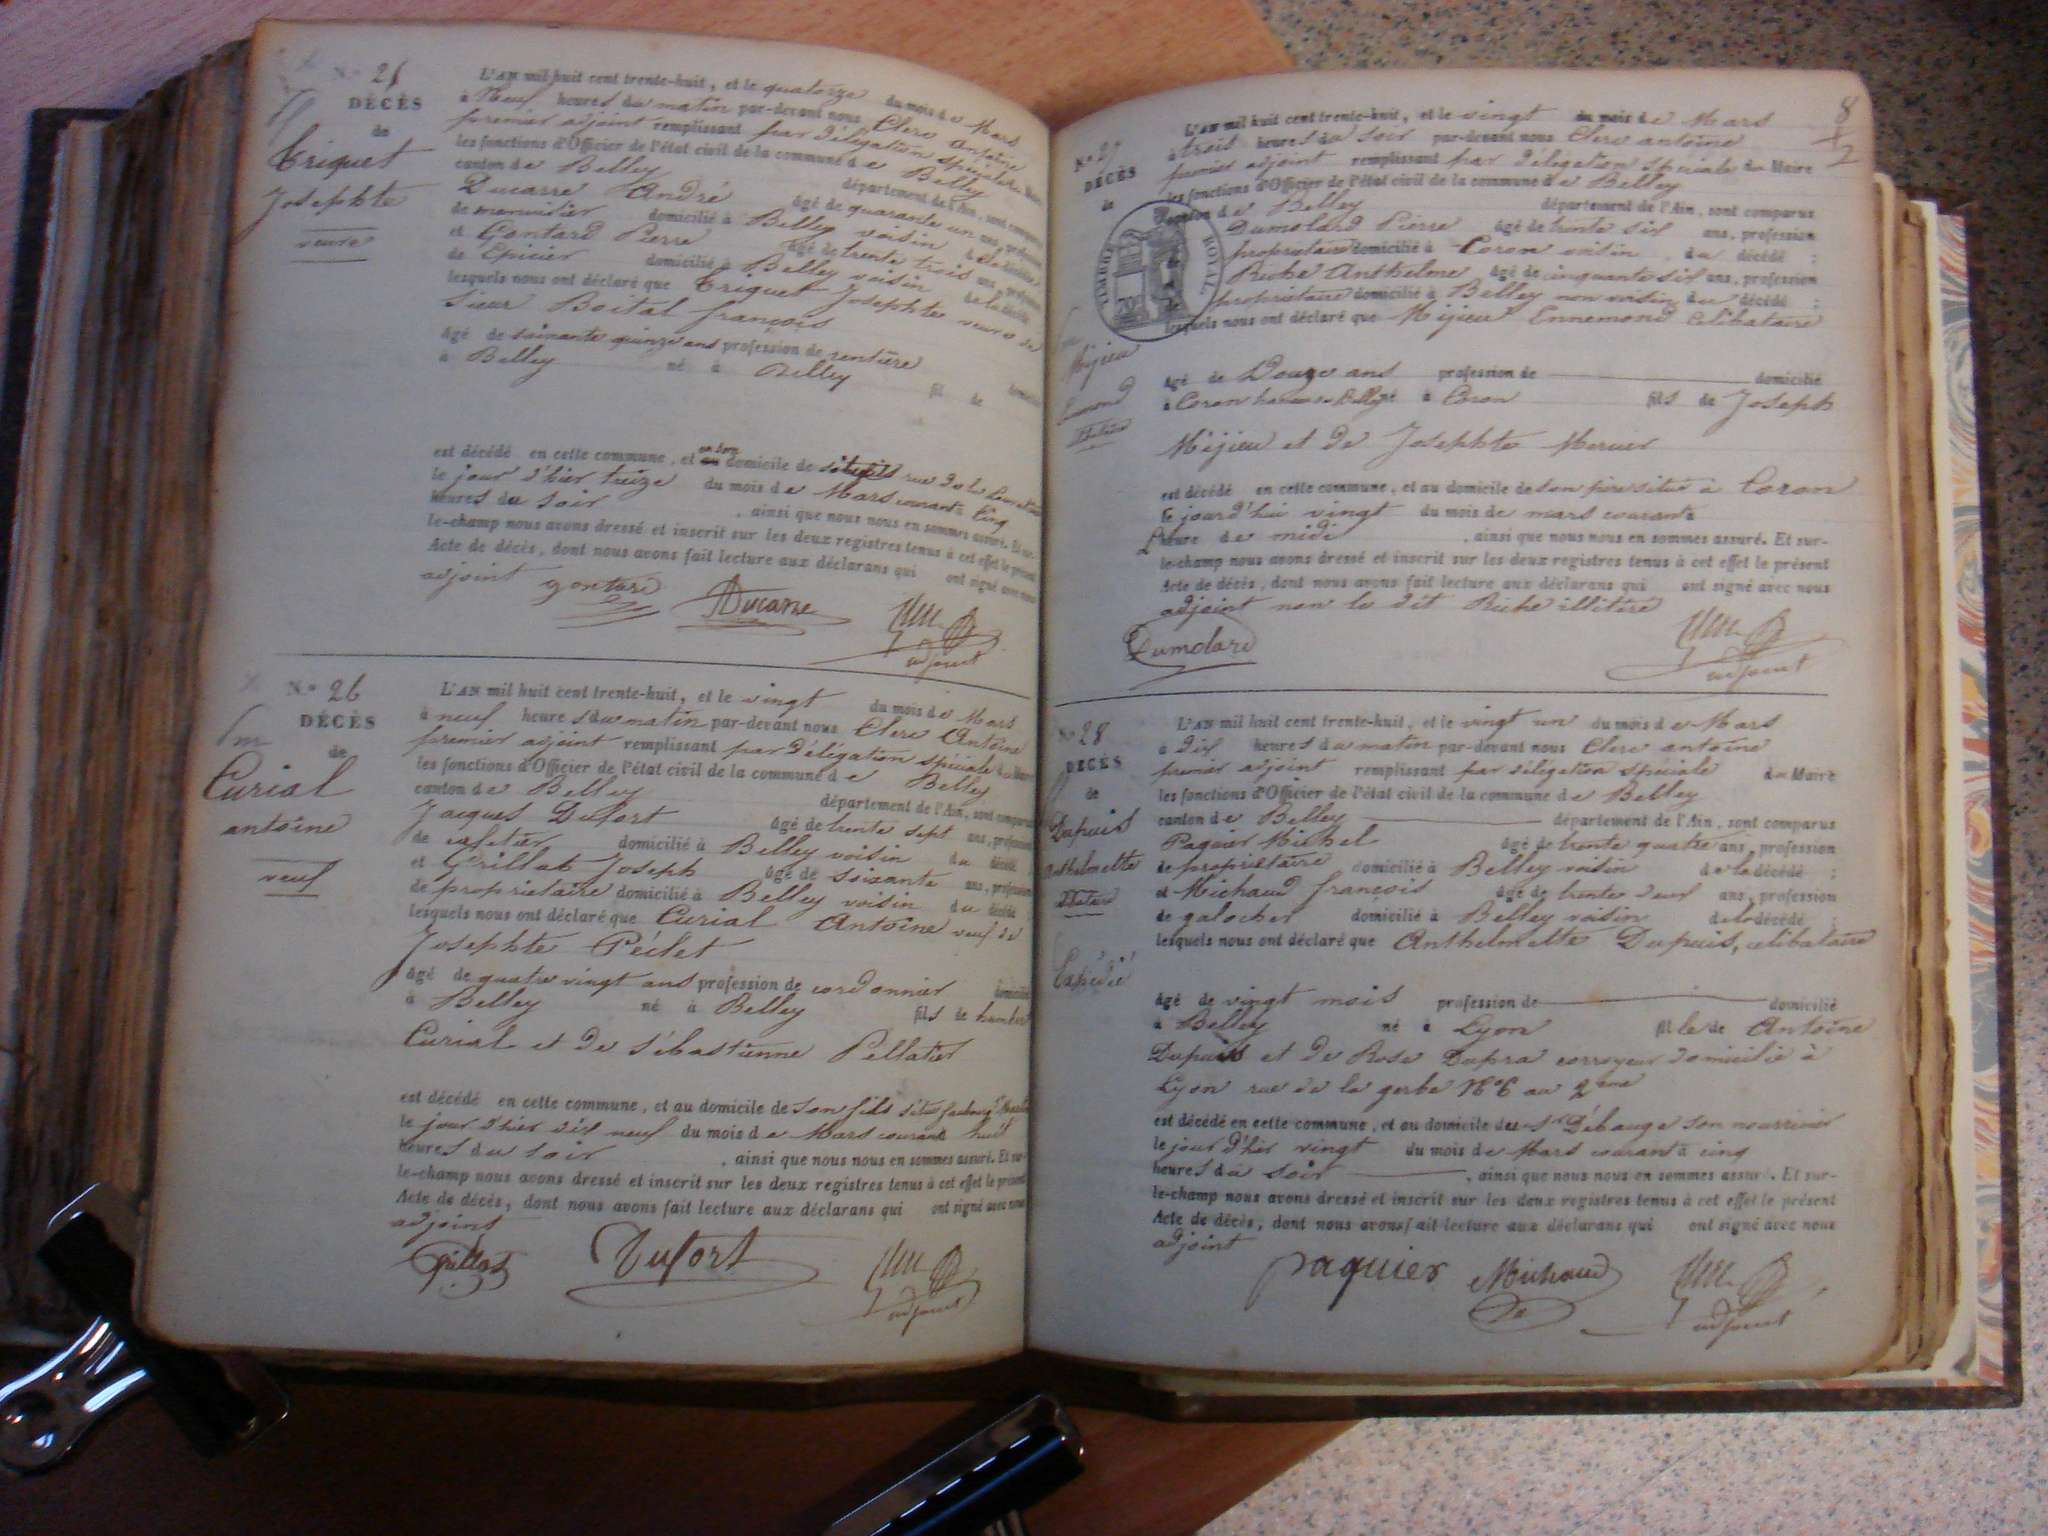 N.° 25
DÉCÈS
de
Triquet
Josephte
veuve
L'AN mil huit cent trente-huit, et le quatorze du mois de Mars
à Neuf heures du matin par-devant nous Clerc Antoine
premier adjoint remplissant par délégation spéciale du Maire
les fonctions d'Officier de l'état civil de la commune de Belley
canton de Belley département de l'Ain, sont comparus
Ducarre André âgé de quarante un ans, profession
de menuisier domicilié à Belley voisin de la décédée
et Gontard Pierre âgé de trente trois ans, profession
de Epicier domicilié à Belley voisin de la décédée
lesquels nous ont déclaré que Triquet Josephte veuve de
Sieur Boital françois
âgé de soixante quinze ans profession de rentière domicilié
à Belley né à Belley fil de
est décédé en cette commune, et au domicile de rue de la
le jour d'hier treize du mois de Mars courant à Cinq
heures du soir , ainsi que nous nous en sommes assuré. Et sur-
le-champ nous avons dressé et inscrit sur les deux registres tenus à cet effet le présent
Acte de décès, dont nous avons fait lecture aux déclarans qui ont signé avec nous
adjoint gontard Ducarre
adjoint
N.° 26
DÉCÈS
de
Curial
antoine
veuf
L'AN mil huit cent trente-huit, et le vingt du mois de Mars
à neuf heures du matin par-devant nous Clerc Antoine
premier adjoint remplissant par délégation spéciale du Maire
les fonctions d'Officier de l'état civil de la commune de Belley
canton de Belley département de l'Ain, sont comparus
Jacques Dufort âgé de trente sept ans, profession
de cafetier domicilié à Belley voisin du décédé
et Grillat Joseph âgé de soixante ans, profession
de propriétaire domicilié à Belley voisin du décédé
lesquels nous ont déclaré que Curial Antoine veuf de
Josephte Péclet
âgé de quatre vingt ans profession de cordonnier domicilié
à Belley né à Belley fils de humbert
Curial et de Sébastienne Pellatier
est décédé en cette commune, et au domicile de son fils situé faubourg
le jour d'hier dix neuf du mois de Mars courant huit
heures du soir , ainsi que nous nous en sommes assuré. Et sur-
le-champ nous avons dressé et inscrit sur les deux registres tenus à cet effet le présent
Acte de décès, dont nous avons fait lecture aux déclarans qui ont signé avec nous
adjoint
Grillat Dufort
adjoint
8
N.° 27
DÉCÈS
de
Méjieu
TIMBRE ROYAL
L'AN mil huit cent trente-huit, et le vingt du mois de Mars
à trois heures du soir par-devant nous Clerc antoine
premier adjoint remplissant par délégation spéciale du Maire
les fonctions d'Officier de l'état civil de la commune de Belley
canton de Belley département de l'Ain, sont comparus
Dumolard Pierre âgé de trente six ans, profession
propriétaire domicilié à Coron voisin du décédé ;
Riche Anthelme âgé de cinquante six ans, profession
propriétaire domicilié à Belley non voisin du décédé ;
lesquels nous ont déclaré que Méjieu Ennemond célibataire
âgé de Douze ans profession de domicilié
à Coron hameau de Belley né à Coron fils de Joseph
Méjieu et de Josephte Mercier
est décédé en cette commune, et au domicile de son père situé à Coron
le jourd'hui vingt du mois de mars courant à
l'heure de midi , ainsi que nous nous en sommes assuré. Et sur-
le-champ nous avons dressé et inscrit sur les deux registres tenus à cet effet le présent
Acte de décès, dont nous avons fait lecture aux déclarans qui ont signé avec nous
adjoint non le dit Riche illitéré
Dumolard
adjoint
N.° 28
DÉCÈS
de
Dupuis
Anthelmette
Expédié
L'AN mil huit cent trente-huit, et le vingt un du mois de Mars
à Dix heures du matin par-devant nous Clerc antoine
premier adjoint remplissant par délégation spéciale du Maire
les fonctions d'Officier de l'état civil de la commune de Belley
canton de Belley département de l'Ain, sont comparus
Paquier Michel âgé de trente quatre ans, profession
de propriétaire domicilié à Belley voisin de la décédé ;
et Michaud françois âgé de trente deux ans, profession
de galocher domicilié à Belley voisin de la décédé ;
lesquels nous ont déclaré que Anthelmette Dupuis, célibataire
âgé de vingt mois profession de domicilié
à Belley né à Lyon fille de Antoine
Dupuis et de Rose Dupra corroyeur domicilié à
Lyon rue de la gerbe N° 6 au 2eme
est décédé en cette commune, et au domicile de Sr Débauge son nourricier
le jour d'hier vingt du mois de Mars courant à cinq
heures du soir , ainsi que nous nous en sommes assuré. Et sur-
le-champ nous avons dressé et inscrit sur les deux registres tenus à cet effet le présent
Acte de décès, dont nous avons fait lecture aux déclarans qui ont signé avec nous
adjoint
Paquier Michaud
adjoint